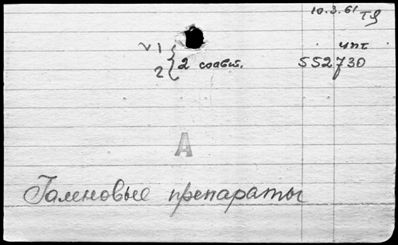 10.3.61 ТЯ
√ 1 чпт
2 { 2 соавт. 552730
А
Галеновые препараты